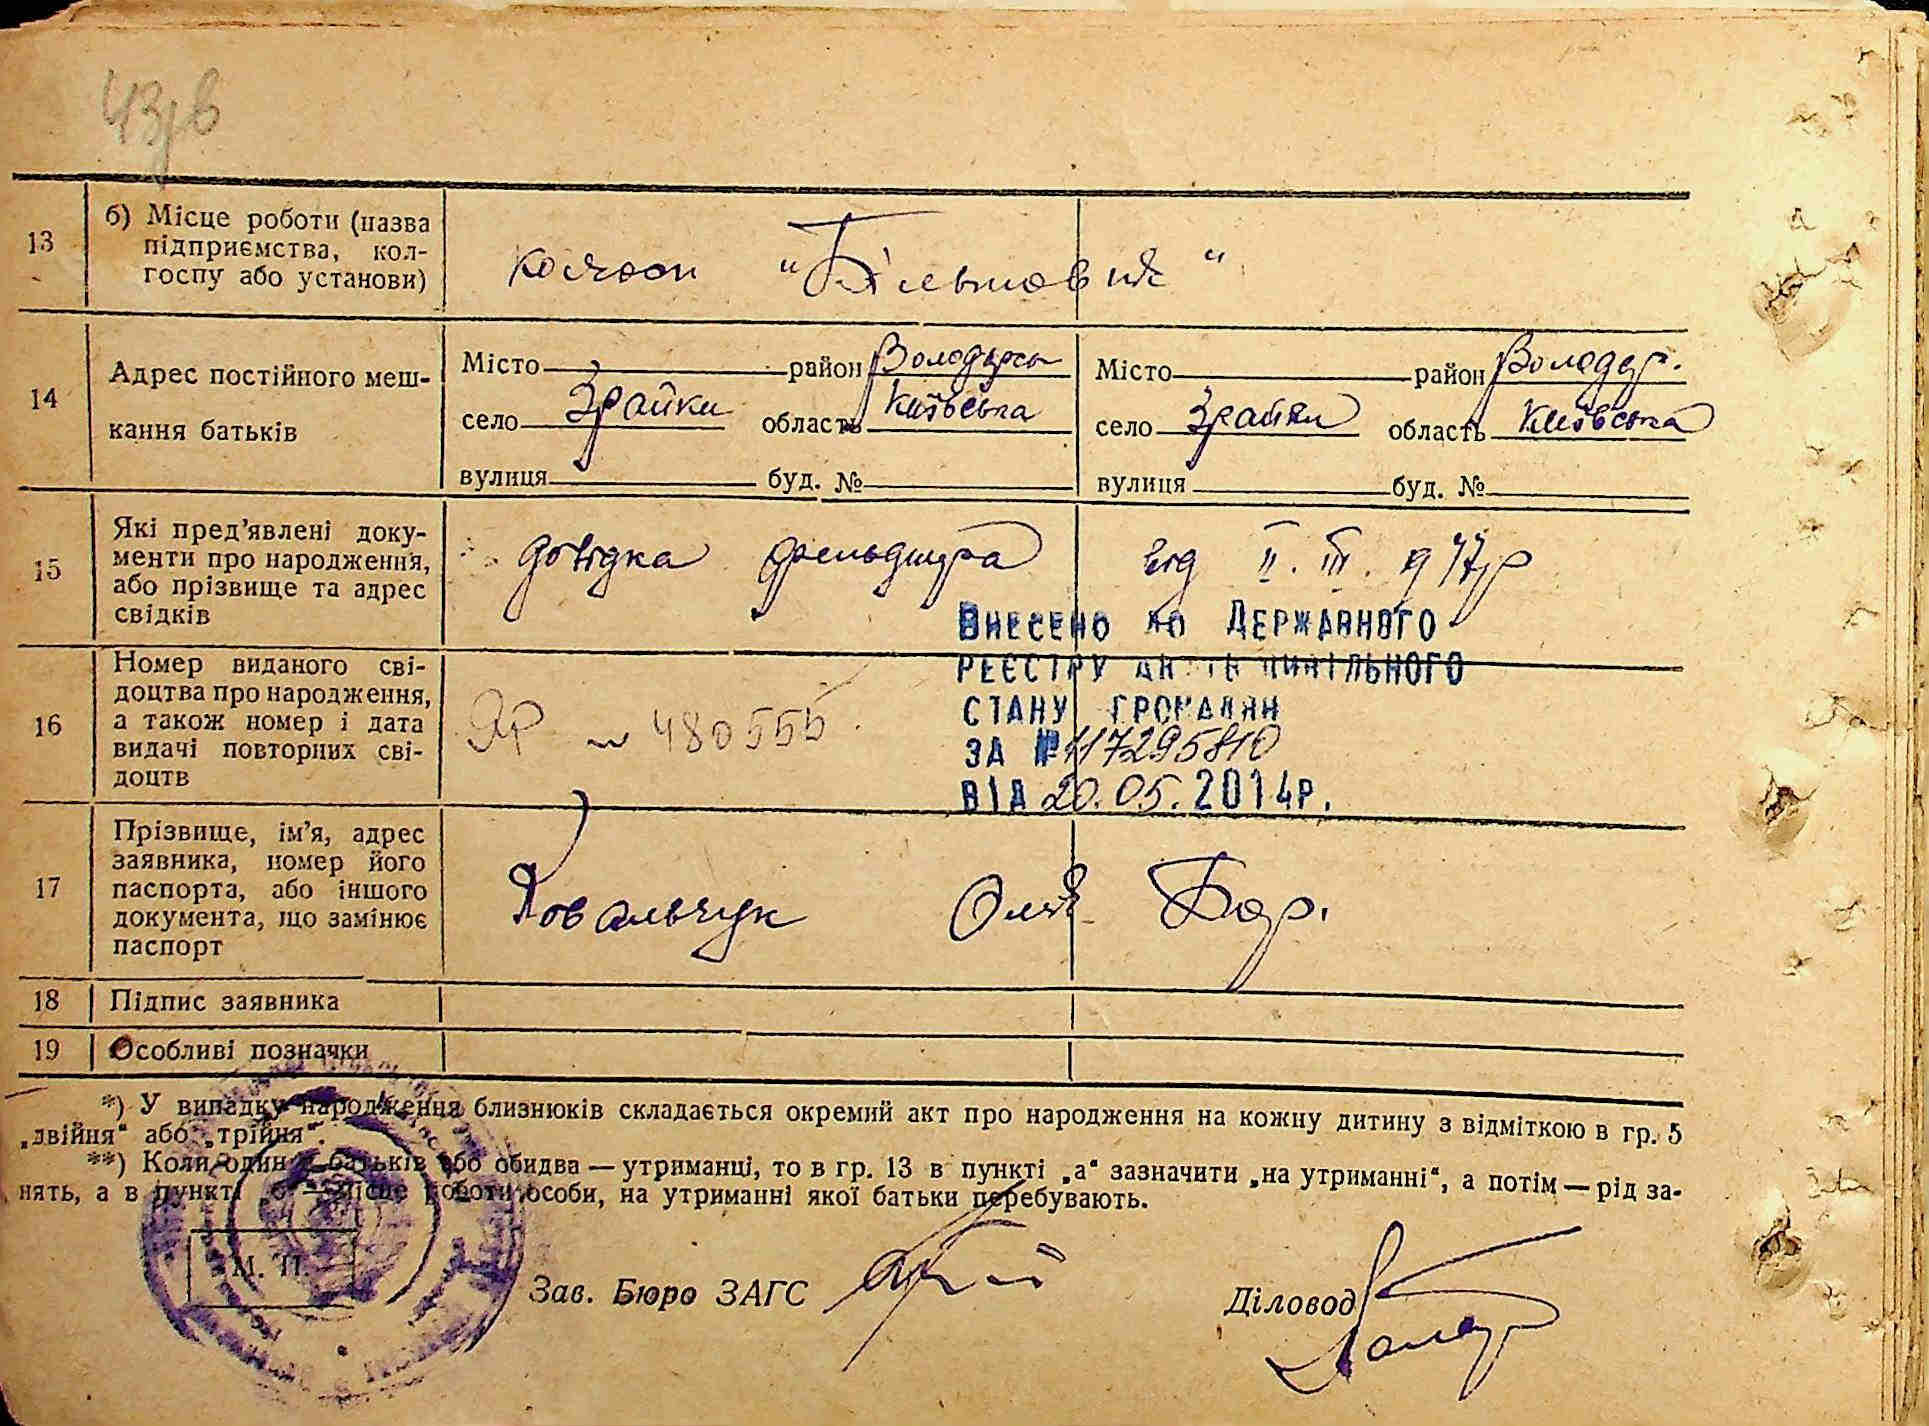 43,в
13
б) Місце роботи (назва
підприємства, кол-
госпу або установи)
колгосп "Більшовик"
14
Адрес постійного меш-
кання батьків
Місто район Володарськ
село Зрайки область Київська
вулиця буд. №
Місто район Володар.
село Зрайки область Київська
вулиця буд. №
15
Які пред'явлені доку-
менти про народження,
або прізвище та адрес
свідків
довідка фельдшера від ІІ. ІІІ.
16
Номер виданого сві-
доцтва про народження,
а також номер і дата
видачі повторних сві-
доцтв
ЯР № 480555
Внесено до Державного
реєстру актів цивільного
стану громадян
за № 117295810
від 20.05.2014р.
17
Прізвище, ім'я, адрес
заявника, номер його
паспорта, або іншого
документа, що замінює
паспорт
Ковальчук Оля Бор.
18
Підпис заявника
19
Особливі позначки
*) У випадку народження близнюків складається окремий акт про народження на кожну дитину з відміткою в гр. 5
„двійня“ або „трійня“.
**) Коли один з батьків або обидва — утриманці, то в гр. 13 в пункті „а“ зазначити „на утриманні“, а потім — рід за-
нять, а в пункті „б“ — місце роботи особи, на утриманні якої батьки перебувають.
М. П.
Зав. Бюро ЗАГС
Діловод